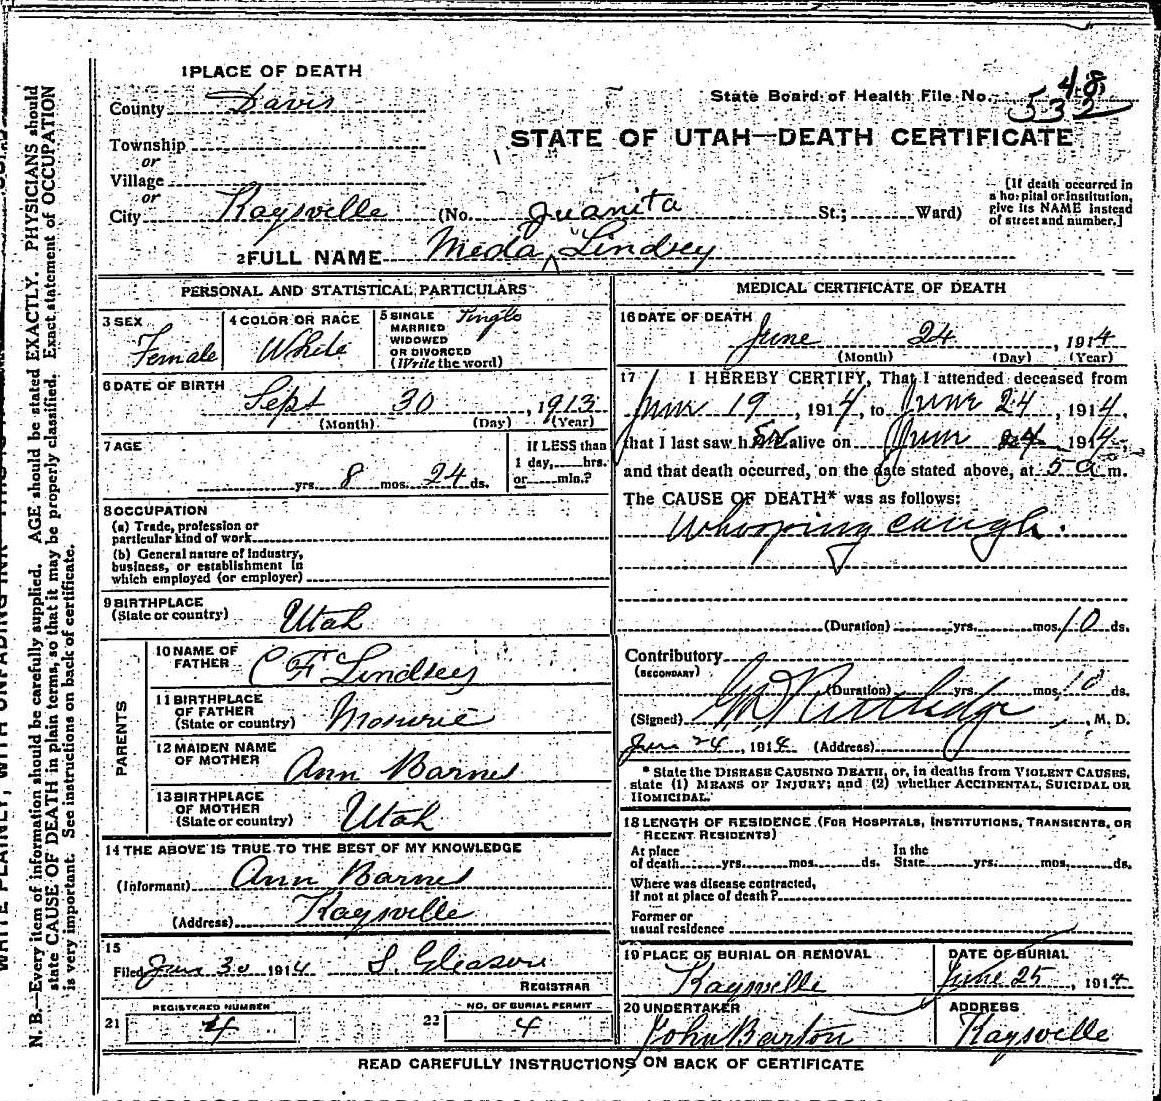 1 PLACE OF DEATH
County Davis
State Board of Health File No. 48
532
Township
or
Village
or
City Kaysville (No. St.; Ward)
STATE OF UTAH—DEATH CERTIFICATE
[If death occurred in
a hospital or institution,
give its NAME instead
of street and number.]
Juanita
2 FULL NAME Meda ^ Lindsey
PERSONAL AND STATISTICAL PARTICULARS
3 SEX
Female
4 COLOR OR RACE
White
5 SINGLE
MARRIED
WIDOWED
OR DIVORCED
(Write the word)
Single
6 DATE OF BIRTH
Sept 30, 1913
(Month) (Day) (Year)
7 AGE
yrs. 8 mos. 24 ds.
If LESS than
1 day, hrs.
or min.?
8 OCCUPATION
(a) Trade, profession or
particular kind of work
(b) General nature of industry,
business, or establishment in
which employed (or employer)
9 BIRTHPLACE
(State or country)
Utah
PARENTS
10 NAME OF
FATHER
C F Lindsey
11 BIRTHPLACE
OF FATHER
(State or country)
12 MAIDEN NAME
OF MOTHER
Ann Barnes
13 BIRTHPLACE
OF MOTHER
(State or country)
Utah
14 THE ABOVE IS TRUE TO THE BEST OF MY KNOWLEDGE
(Informant) Ann Barnes
(Address) Kaysville
15
Filed Jun 30 1914 S. Gleason
REGISTRAR
REGISTERED NUMBER
21 4
NO. OF BURIAL PERMIT
22 4
MEDICAL CERTIFICATE OF DEATH
16 DATE OF DEATH
June 24, 1914
(Month) (Day) (Year)
17 I HEREBY CERTIFY, That I attended deceased from
June 19, 1914, to June 24, 1914,
that I last saw her alive on June 24 1914,
and that death occurred, on the date stated above, at 5 a m.
The CAUSE OF DEATH* was as follows:
Whooping cough.
(Duration) yrs. mos. 10 ds.
Contributory
(SECONDARY)
(Duration) yrs. mos. 10 ds.
(Signed) Rutledge, M. D.
Jun 24, 1914 (Address)
* State the DISEASE CAUSING DEATH, or, in deaths from VIOLENT CAUSES,
state (1) MEANS OF INJURY; and (2) whether ACCIDENTAL, SUICIDAL OR
HOMICIDAL.
18 LENGTH OF RESIDENCE (FOR HOSPITALS, INSTITUTIONS, TRANSIENTS, OR
RECENT RESIDENTS)
At place
of death yrs. mos. ds.
In the
State yrs. mos. ds.
Where was disease contracted,
if not at place of death?
Former or
usual residence
19 PLACE OF BURIAL OR REMOVAL
Kaysville
DATE OF BURIAL
June 25, 1914
20 UNDERTAKER
John Barton
ADDRESS
Kaysville
READ CAREFULLY INSTRUCTIONS ON BACK OF CERTIFICATE
WRITE PLAINLY, WITH UNFADING INK
N. B.—Every item of information should be carefully supplied. AGE should be stated EXACTLY. PHYSICIANS should
state CAUSE OF DEATH in plain terms, so that it may be properly classified. Exact statement of OCCUPATION
is very important. See instructions on back of certificate.